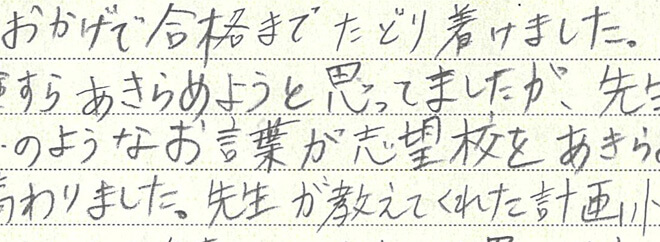 おかげで合格までたどり着けました。
すらあきらめようと思ってましたが、先生
のようなお言葉が志望校をあきら
わりました。先生が教えてくれた計画